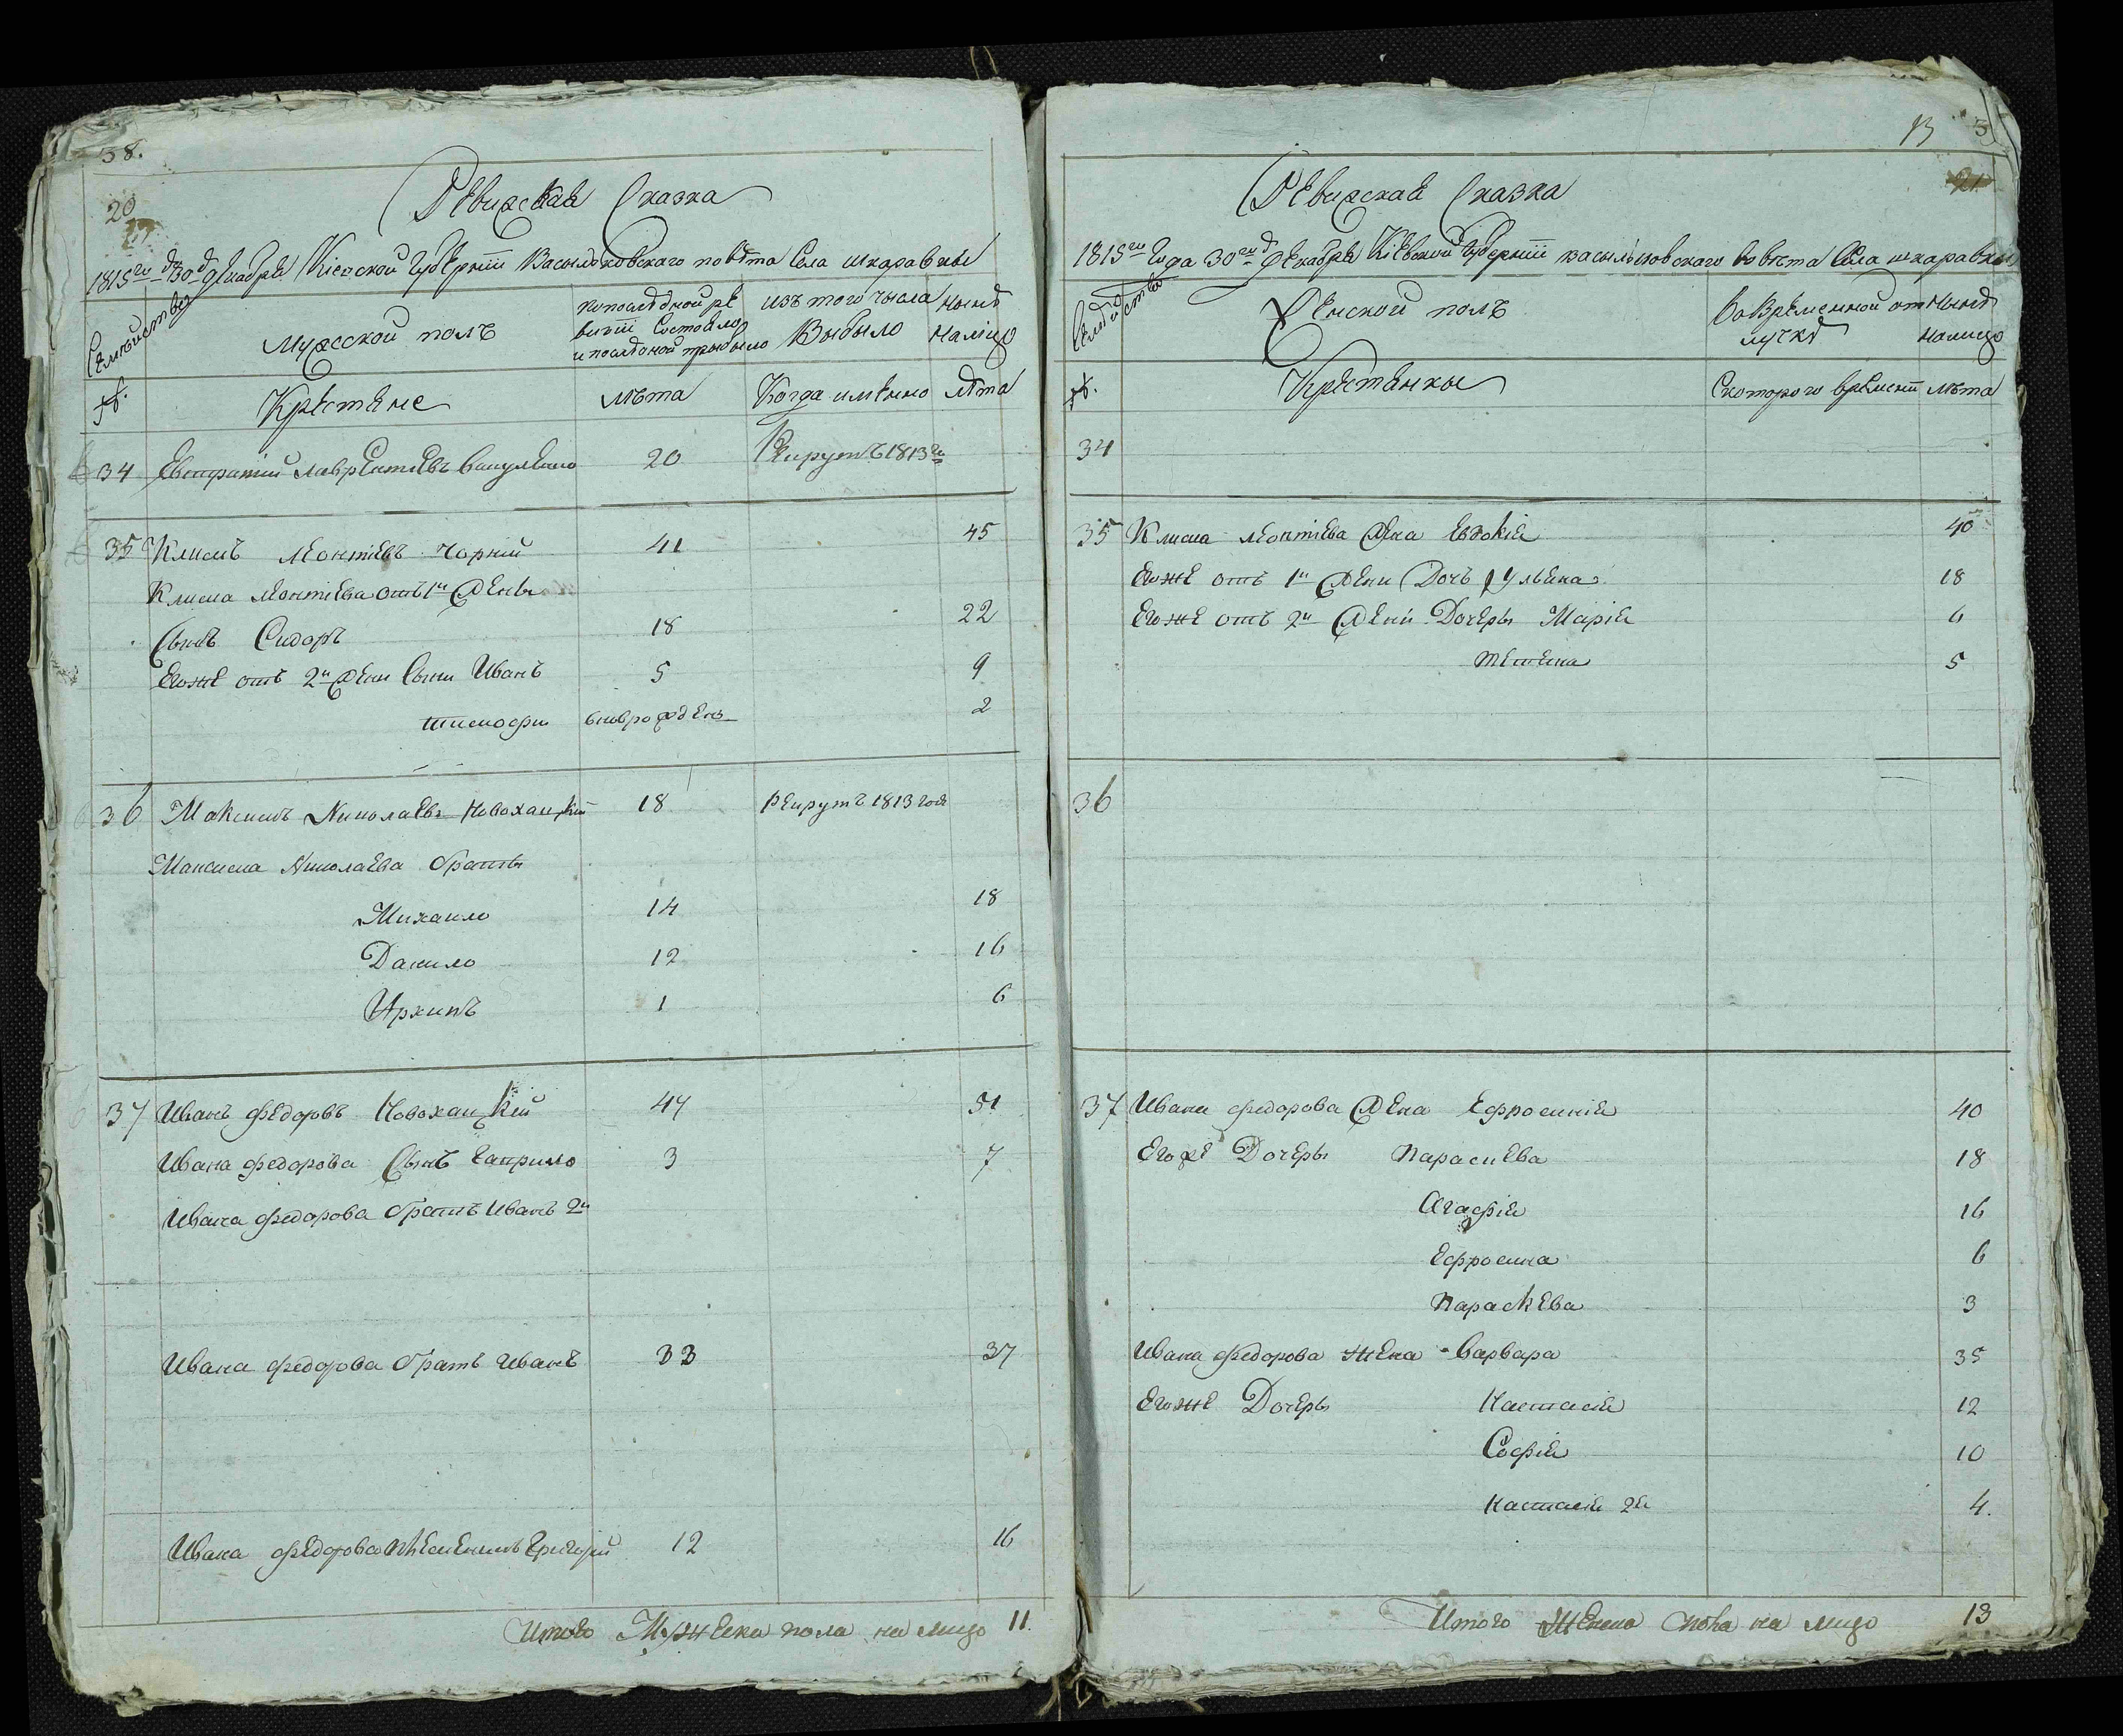 38.
20
Ревизская Сказка
1815го года 30го декабря Кіевской Губерніи Васильковского повѣта Села шкаравки
Семейство
Мужеской полъ
По последной ре
визіи Состояло
и после оной прибыло
изъ того числа
Выбыло
Нынѣ
Налицо
№.
Крестяне
лѣта
Когда имѣнно
лѣта
34 Евстратий лаврентіевъ 20 Рекрутъ 1813го
35 Климъ леонтіевъ Чорній 41 45
Клима леонтіева отъ 1й Жены
Сынъ Сидоръ 18 22
Егоже отъ 2й Жени Сыни Иванъ 5 9
тимофи вноврожденъ 2
36 Максимъ Николаевъ Новохацкій 18 рекрутъ 1813 года
Максима Николаева браты
Михаило 14 18
Данило 12 16
Архипъ 1 6
37 Иванъ федоровъ Новохацкій 47 51
Ивана федорова Сынъ Гаврило 3 7
Ивана федорова братъ Иванъ 2й
Ивана федорова братъ Иванъ 33 37
Ивана федорова племенникъ Григорій 12 16
Итого Мужеска пола на лицо 11.
13
21
Ревизская Сказка
1815го Года 30го Декабря Кіевской Губерніи васильковского повѣта Села шкаравки
Семейство
Женской полъ
Во Временной от
лучкѣ
Нынѣ
налицо
№.
Крестянки
Скоторого времени
лѣта
34
35 Клима леонтіева Жена Евдокія 40
Егоже отъ 1й Жени Дочъ Ульяна 18
Егоже отъ 2й Жени Дочеры Марія 6
тетяна 5
36
37 Ивана федорова Жена Ефросинія 40
Егоже Дочеры Параскева 18
Агафія 16
Ефросина 6
Параскева 3
Ивана федорова жена Варвара 35
Егоже Дочеры Настасія 12
Софія 10
Настасія 2я 4.
Итого Женска пола на лицо 13